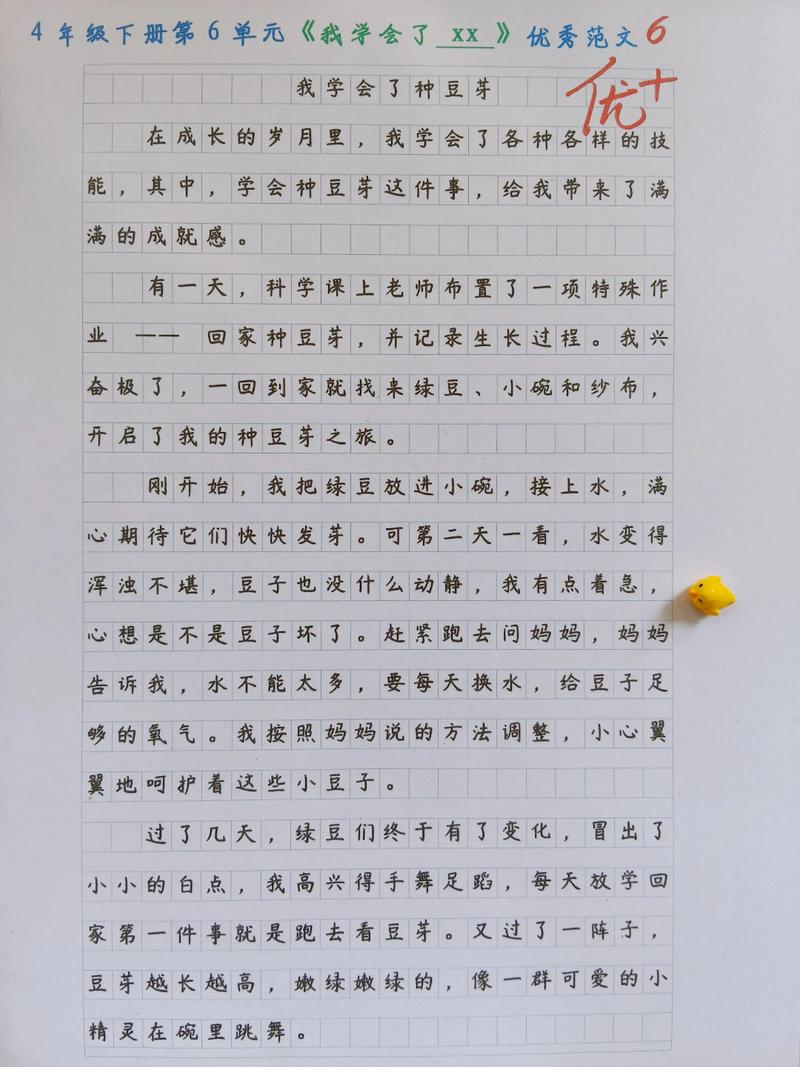 4年级下册第6单元《我学会了 xx 》优秀范文6
优+
我学会了种豆芽
在成长的岁月里，我学会了各种各样的技
能，其中，学会种豆芽这件事，给我带来了满
满的成就感。
有一天，科学课上老师布置了一项特殊作
业 —— 回家种豆芽，并记录生长过程。我兴
奋极了，一回到家就找来绿豆、小碗和纱布，
开启了我的种豆芽之旅。
刚开始，我把绿豆放进小碗，接上水，满
心期待它们快快发芽。可第二天一看，水变得
浑浊不堪，豆子也没什么动静，我有点着急，
心想是不是豆子坏了。赶紧跑去问妈妈，妈妈
告诉我，水不能太多，要每天换水，给豆子足
够的氧气。我按照妈妈说的方法调整，小心翼
翼地呵护着这些小豆子。
过了几天，绿豆们终于有了变化，冒出了
小小的白点，我高兴得手舞足蹈，每天放学回
家第一件事就是跑去看豆芽。又过了一阵子，
豆芽越长越高，嫩绿嫩绿的，像一群可爱的小
精灵在碗里跳舞。